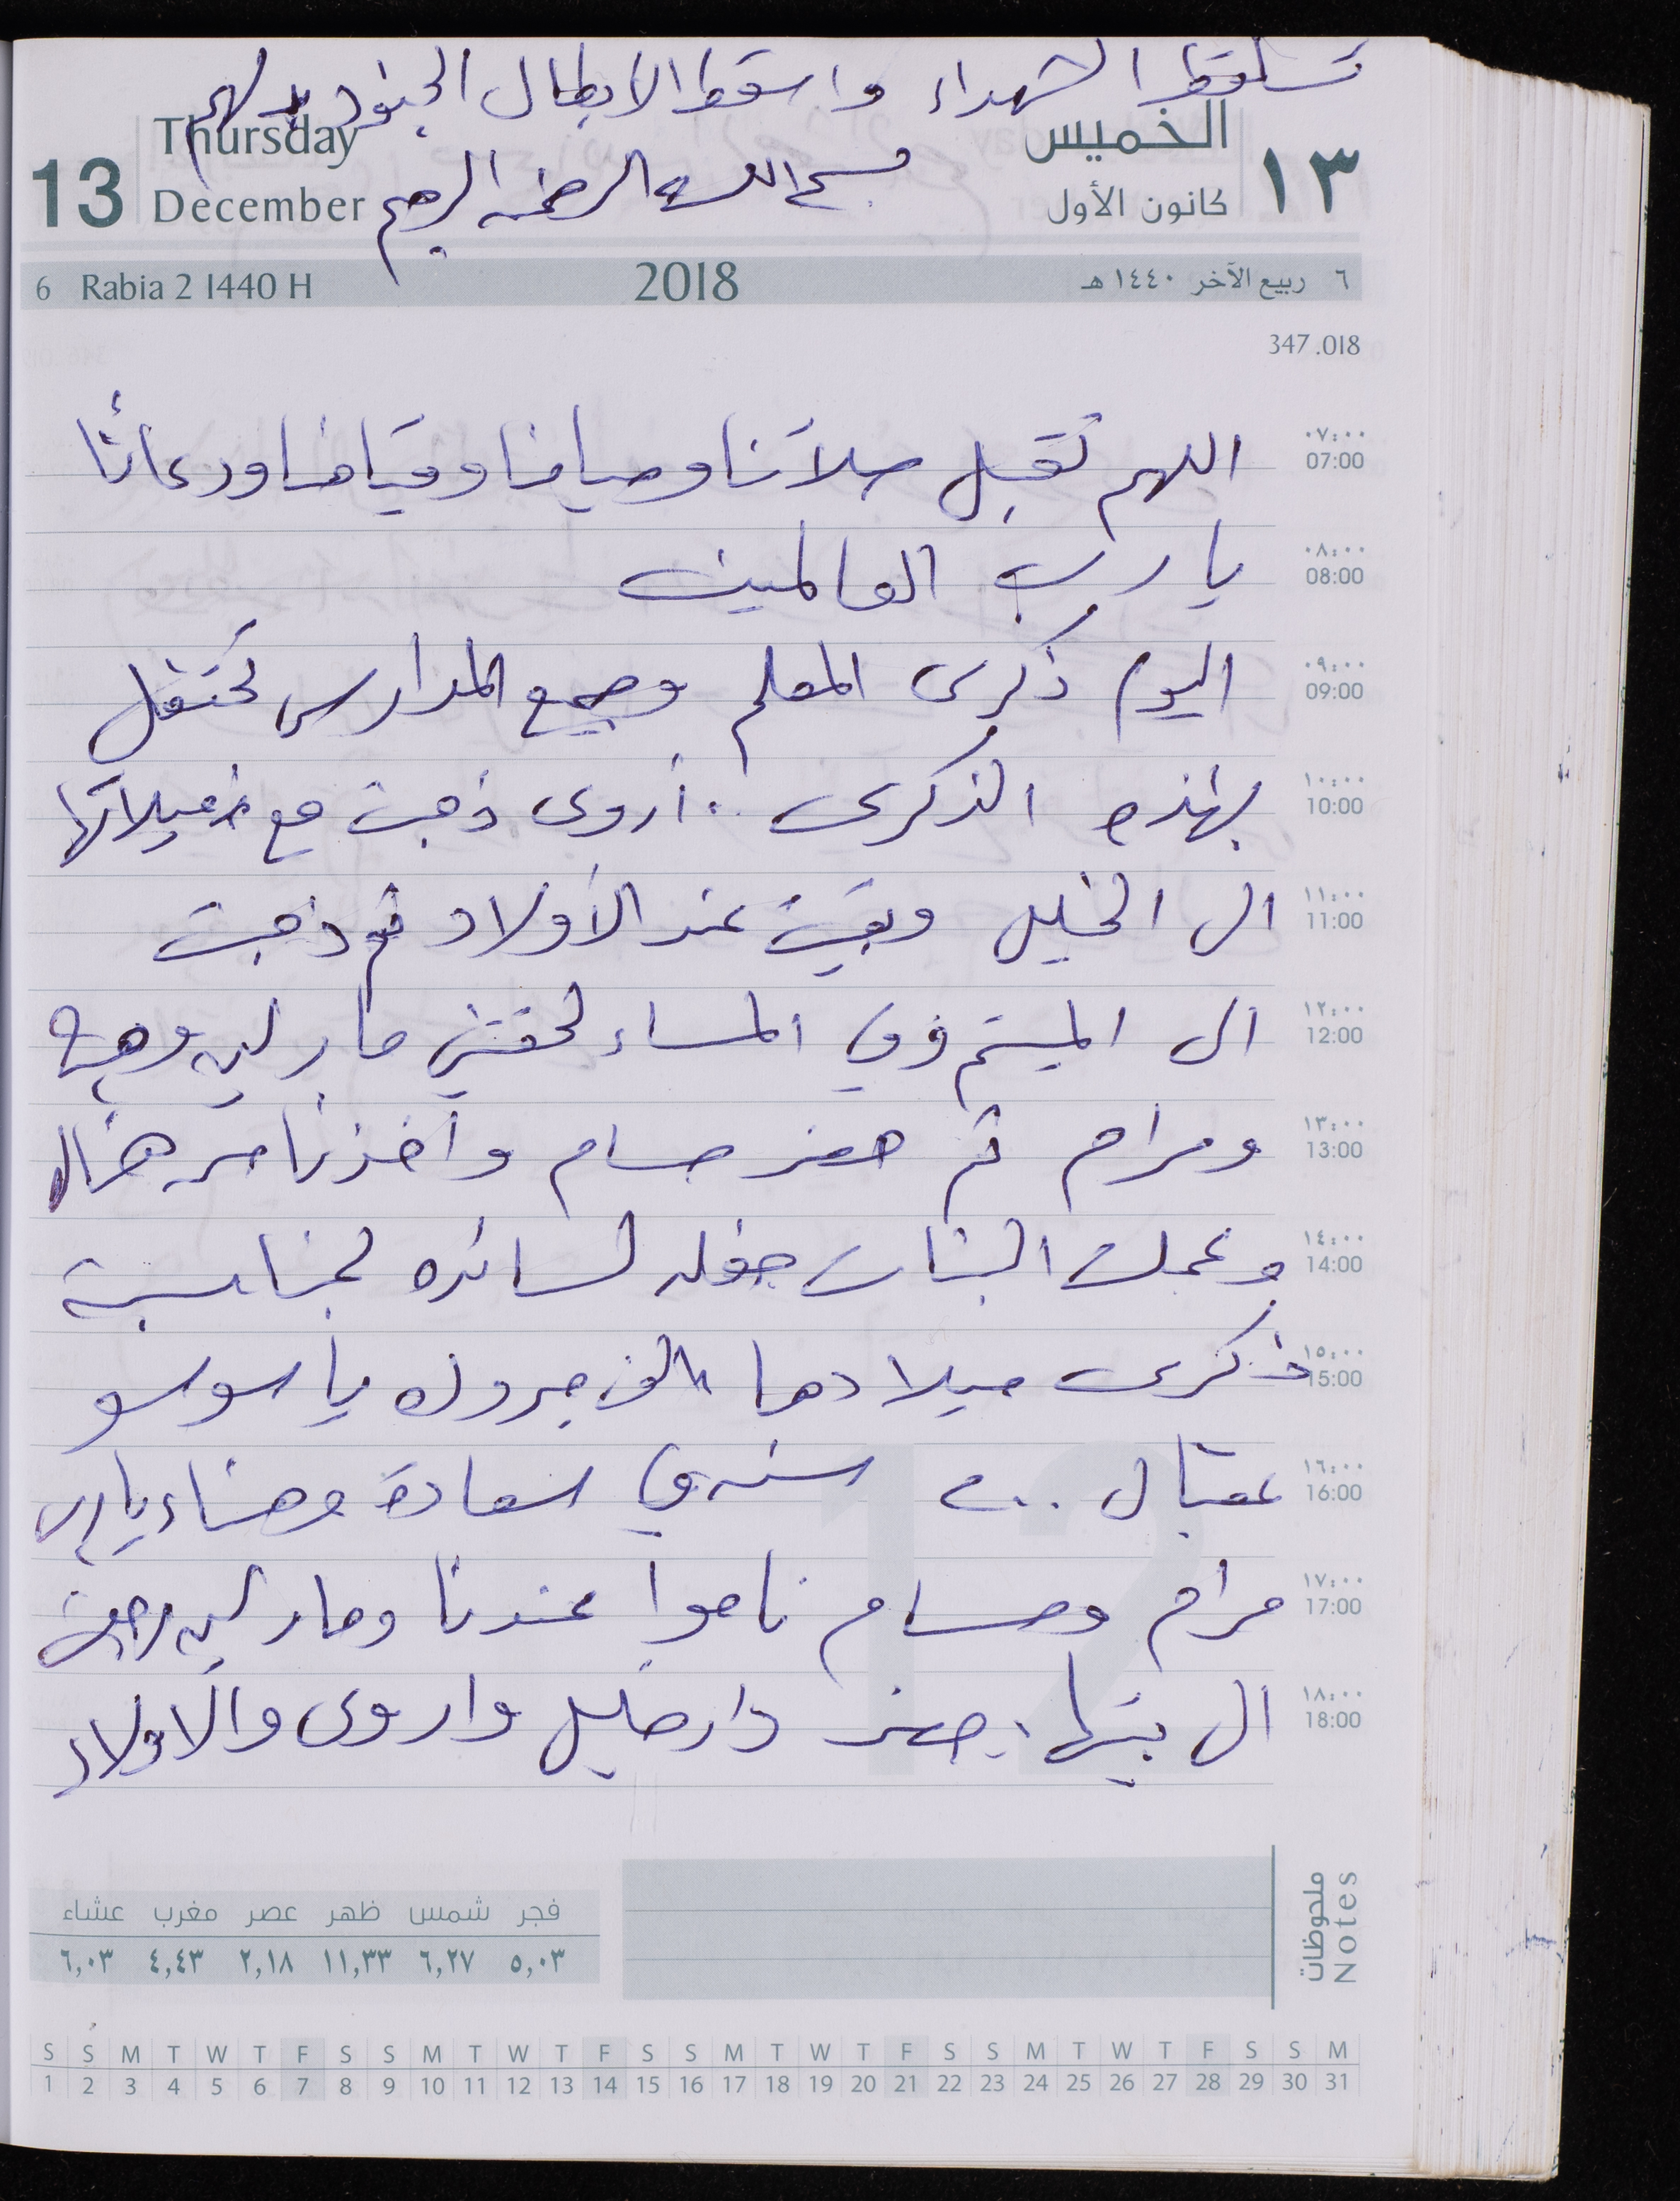 تساقط الشهداء واسقط الابطال الجنود بدلهم
Thursday
الخميس
13
December
بسم الله الرحمن الرحيم
كانون الأول
١٣
6 Rabia 2 1440 H
2018
٦ ربيع الآخر ١٤٤٠ هـ
347.018
٠٧:٠٠
07:00
اللهم تقبل صلاتنا وصيامنا وقيامنا ودعائنا
٠٨:٠٠
08:00
يا رب العالمين
٠٩:٠٠
09:00
اليوم ذكرى المعلم وجميع المدارس تحتفل
١٠:٠٠
10:00
بهذه الذكرى .. أروى ذهبت مع زميلاتها
١١:٠٠
11:00
الى الخليل وبقيت عند الأولاد ثم ذهبت
١٢:٠٠
12:00
الى الميتم وفي المساء لحقتني مارلين وهبه
١٣:٠٠
13:00
ومرام ثم حضر حسام وأخذنا من هناك
١٤:٠٠
14:00
وعملت البنات حفله لسائده لمناسبة
١٥:٠٠
15:00
ذكرى ميلادها الف مبروك يا سوسو
١٦:٠٠
16:00
عقبال ٢٠٠ سنه في سعادة وهناء يارب
١٧:٠٠
17:00
مرام وحسام ناموا عندنا ومارلين رجعت
١٨:٠٠
18:00
الى بيتها. حضر دار خليل واروى والأولاد
ملحوظات
Notes
فجر شمس ظهر عصر مغرب عشاء
٥,٠٣ ٦,٢٧ ١١,٣٣ ٢,١٨ ٤,٤٣ ٦,٠٣
S S M T W T F S S M T W T F S S M T W T F S S M T W T F S S M
1 2 3 4 5 6 7 8 9 10 11 12 13 14 15 16 17 18 19 20 21 22 23 24 25 26 27 28 29 30 31
12